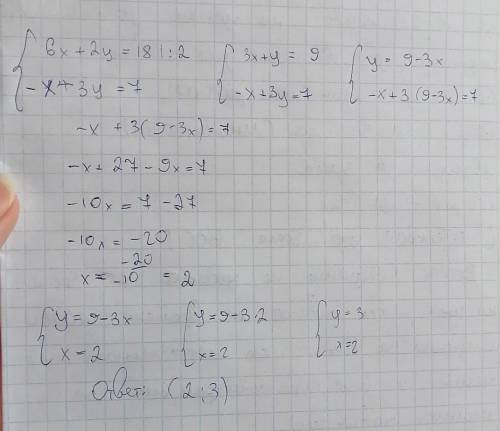 { 6x + 2y = 18 | : 2    { 3x + y = 9    { y = 9 - 3x
{ -x + 3y = 7    { -x + 3y = 7    { -x + 3 (9 - 3x) = 7
-x + 3 (9 - 3x) = 7
-x + 27 - 9x = 7
-10x = 7 - 27
-10x = -20
x = -20/-10 = 2
{ y = 9 - 3x    { y = 9 - 3·2    { y = 3
{ x = 2    { x = 2    { x = 2
Ответ: (2 ; 3)